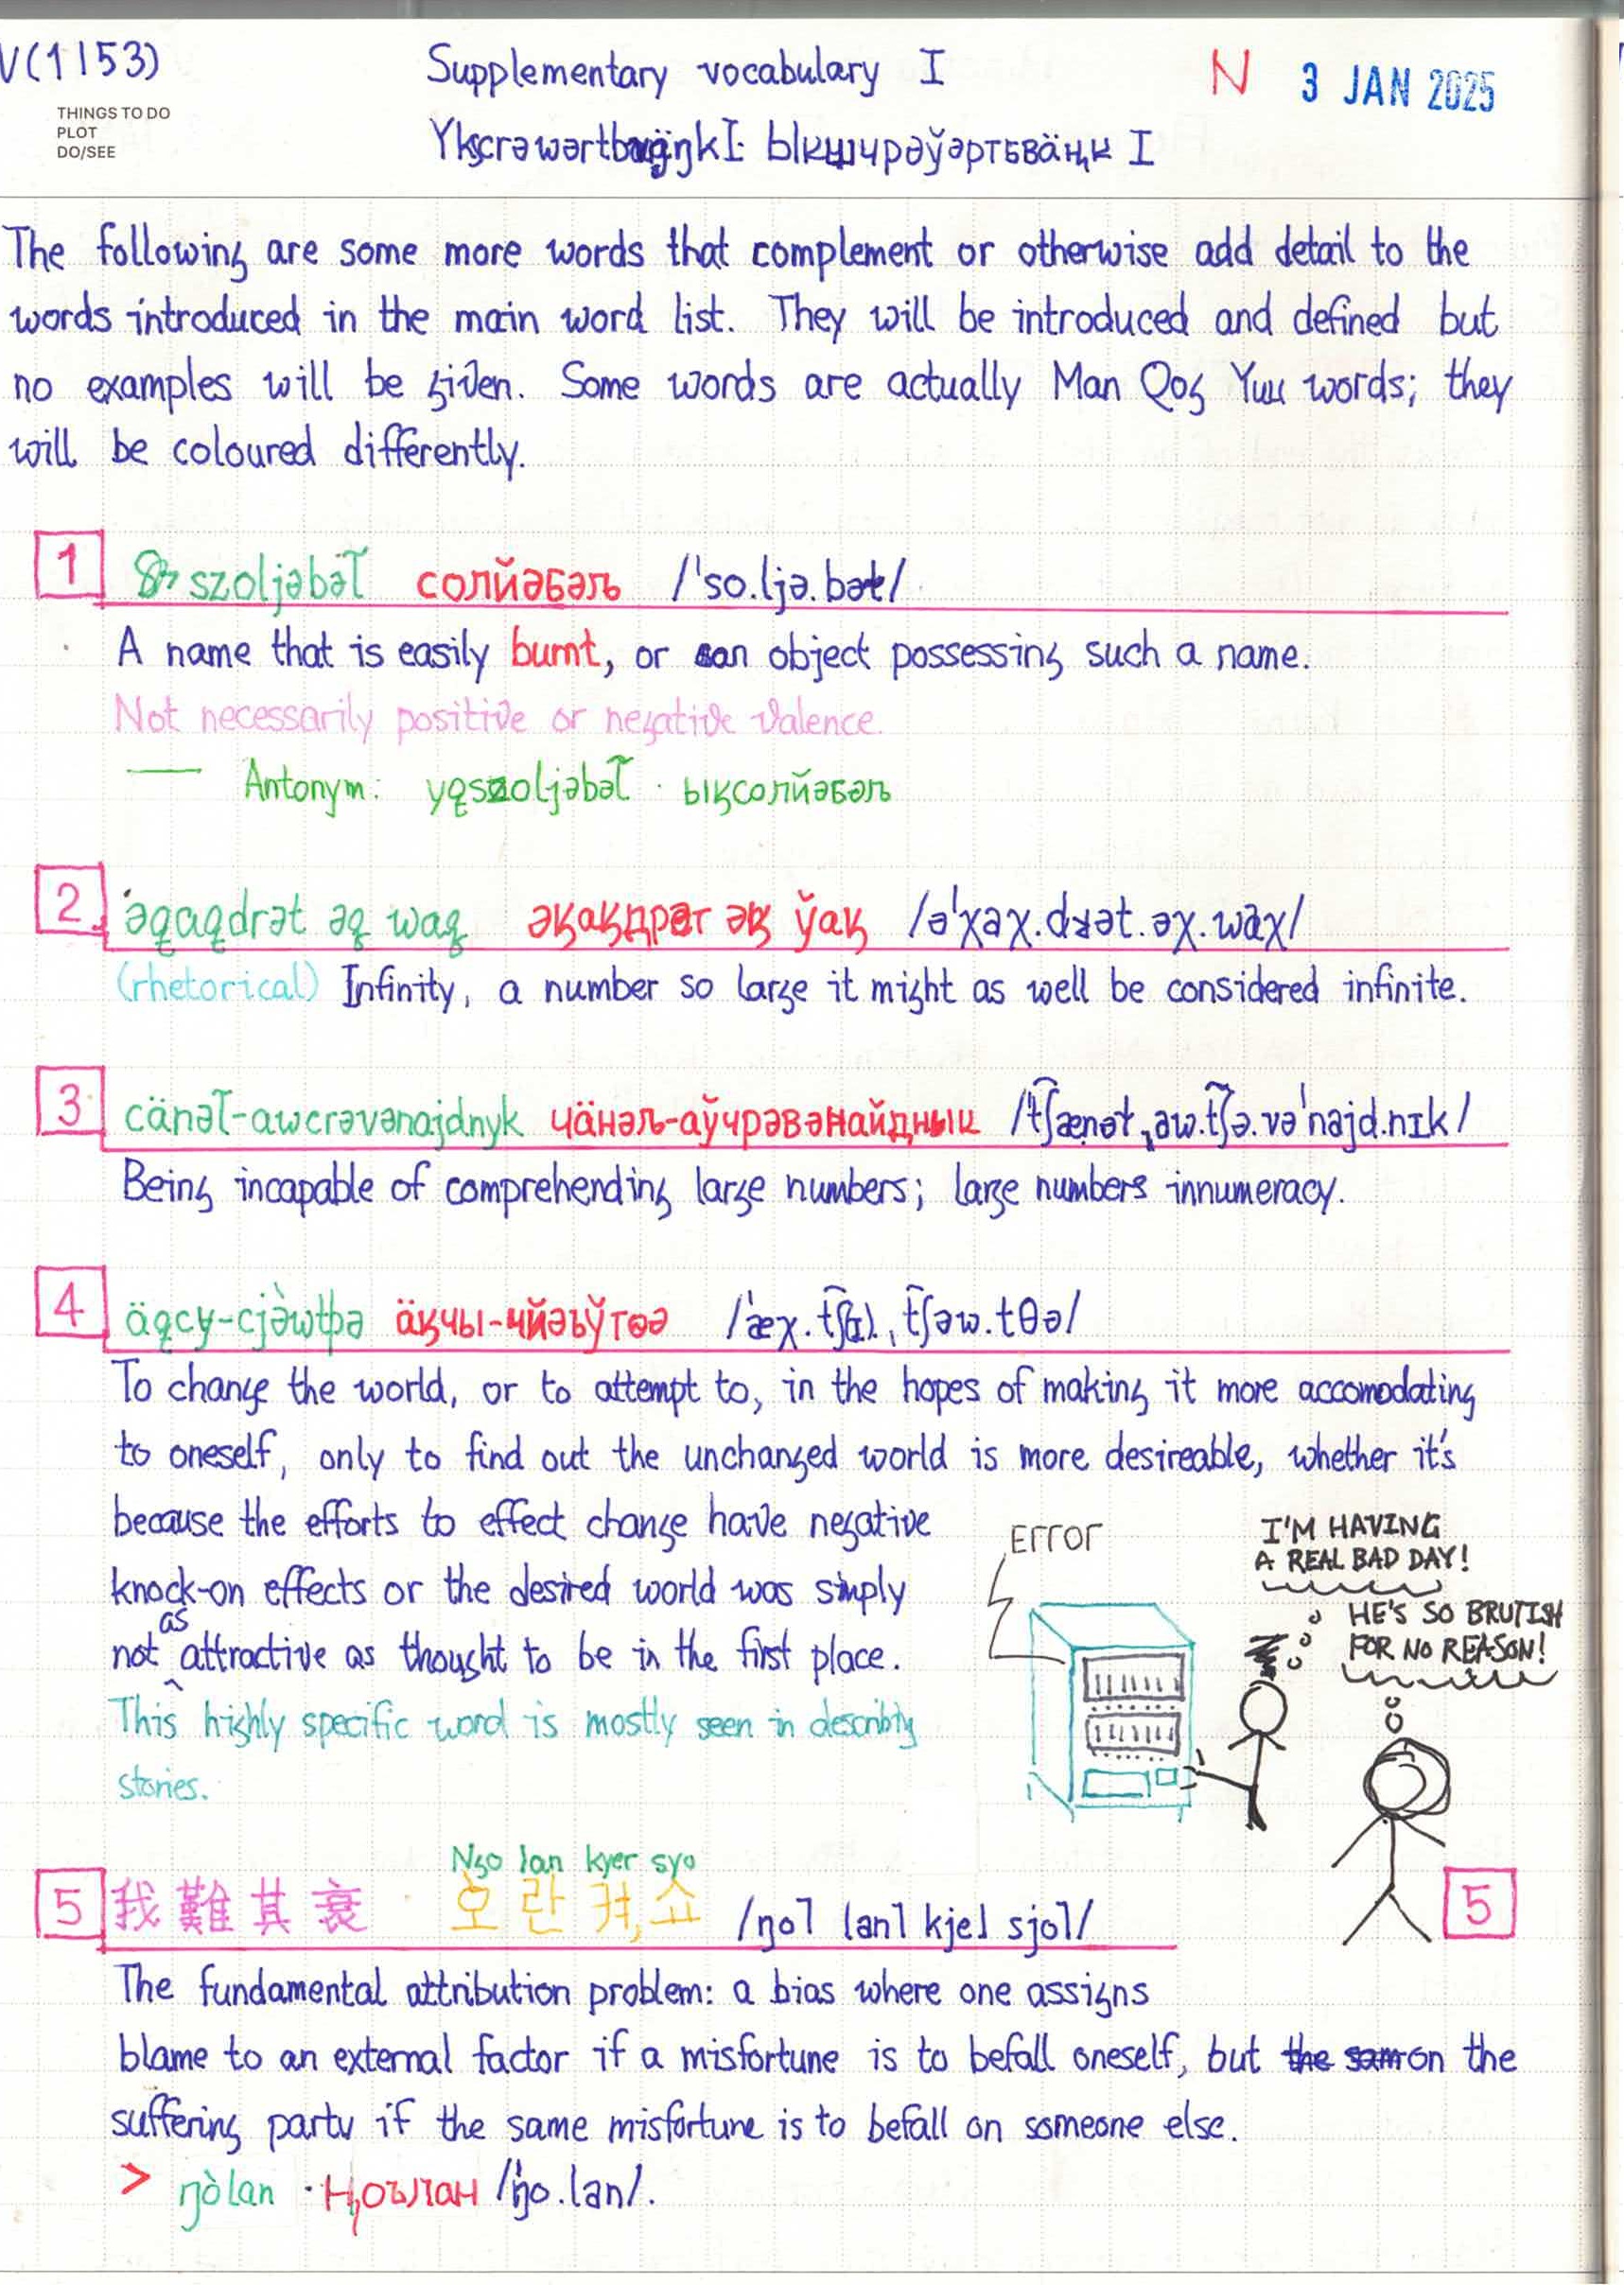 V(1153)
Supplementary vocabulary I
N 3 JAN 2025
THINGS TO DO
PLOT
DO/SEE
I ЫкшчрәўәртьвäңкI
The following are some more words that complement or otherwise add detail to the
words introduced in the main word list. They will be introduced and defined but
no examples will be given. Some words are actually Man Qog Yuu words; they
will be coloured differently.
1 szoljəbəl̃ солйәбәљ /ˈso.ljə.bəɫ/
A name that is easily burnt, or an object possessing such a name.
Not necessarily positive or negative valence.
Antonym: yqszoljəbəl̃ · ықсолйәбәљ
2 əqaqdrət əq waq әқақдрәт әқ ўақ /əˈχaχ.dʁət.əχ.waχ/
(rhetorical) Infinity, a number so large it might as well be considered infinite.
3 cänəl̃-awcrəvənajdnyk чäнәљ-аўчрәвәнайднык /ˈt͡ʃænəɫˌaw.t͡ʃə.vəˈnajd.nɪk/
Being incapable of comprehending large numbers; large numbers innumeracy.
4 äqcy-cjə̀wtþə äқчы-чйәъўтѳә /ˈæχ.t͡ʃɪˌt͡ʃəw.tθə/
To change the world, or to attempt to, in the hopes of making it more accomodating
to oneself, only to find out the unchanged world is more desireable, whether it's
because the efforts to effect change have negative
knock-on effects or the desired world was simply
not as attractive as thought to be in the first place.
This highly specific word is mostly seen in describing
stories.
ERROR
I'M HAVING
A REAL BAD DAY!
HE'S SO BRUTISH
FOR NO REASON!
Ngo lan kyer syo
5 我難其衰 · 오란켜쇼 /ŋo˥ lan˥ kje˩ sjo˥/
5
The fundamental attribution problem: a bias where one assigns
blame to an external factor if a misfortune is to befall oneself, but on the
suffering party if the same misfortune is to befall on someone else.
> ŋòlan · Ңоълан /ˈŋo.lan/.